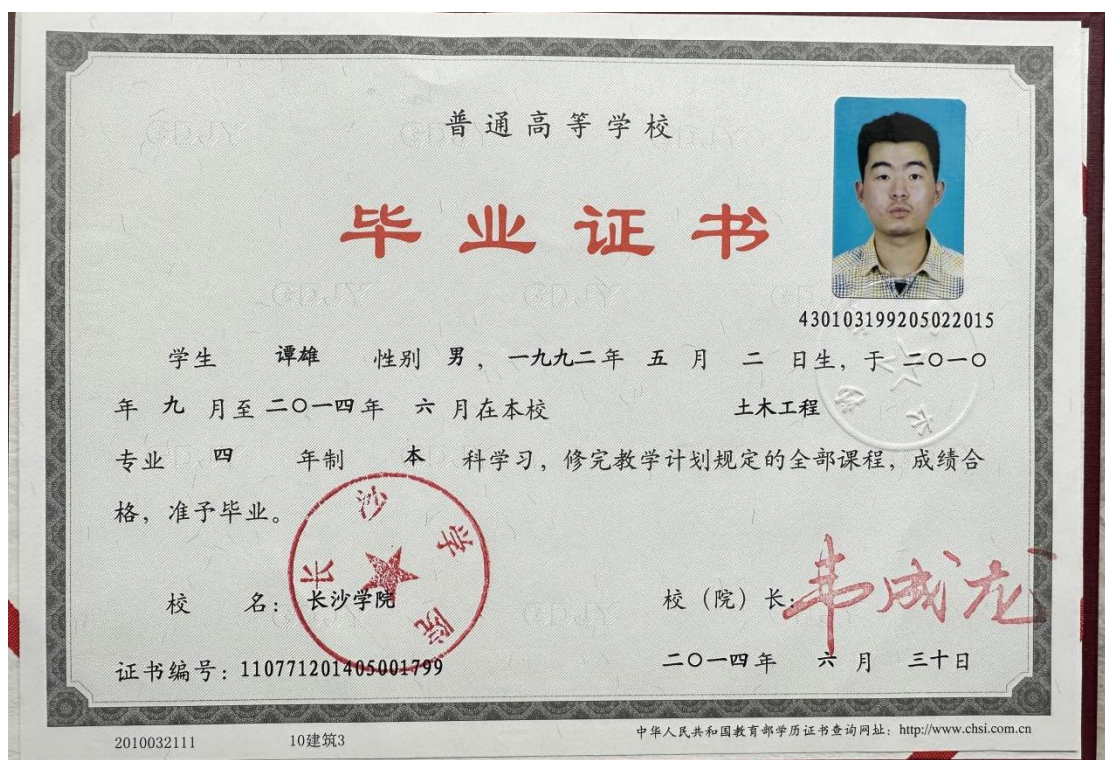 普通高等学校
毕业证书
430103199205022015
学生 谭雄 性别 男，一九九二年 五 月 二 日生，于 二〇一〇
年 九 月至 二〇一四年 六 月在本校 土木工程
专业 四 年制 本 科学习，修完教学计划规定的全部课程，成绩合
格，准予毕业。
长沙学院
校 名：长沙学院 校（院）长：韦成龙
证书编号：110771201405001799 二〇一四年 六 月 三十日
2010032111 10建筑3 中华人民共和国教育部学历证书查询网址：http://www.chsi.com.cn